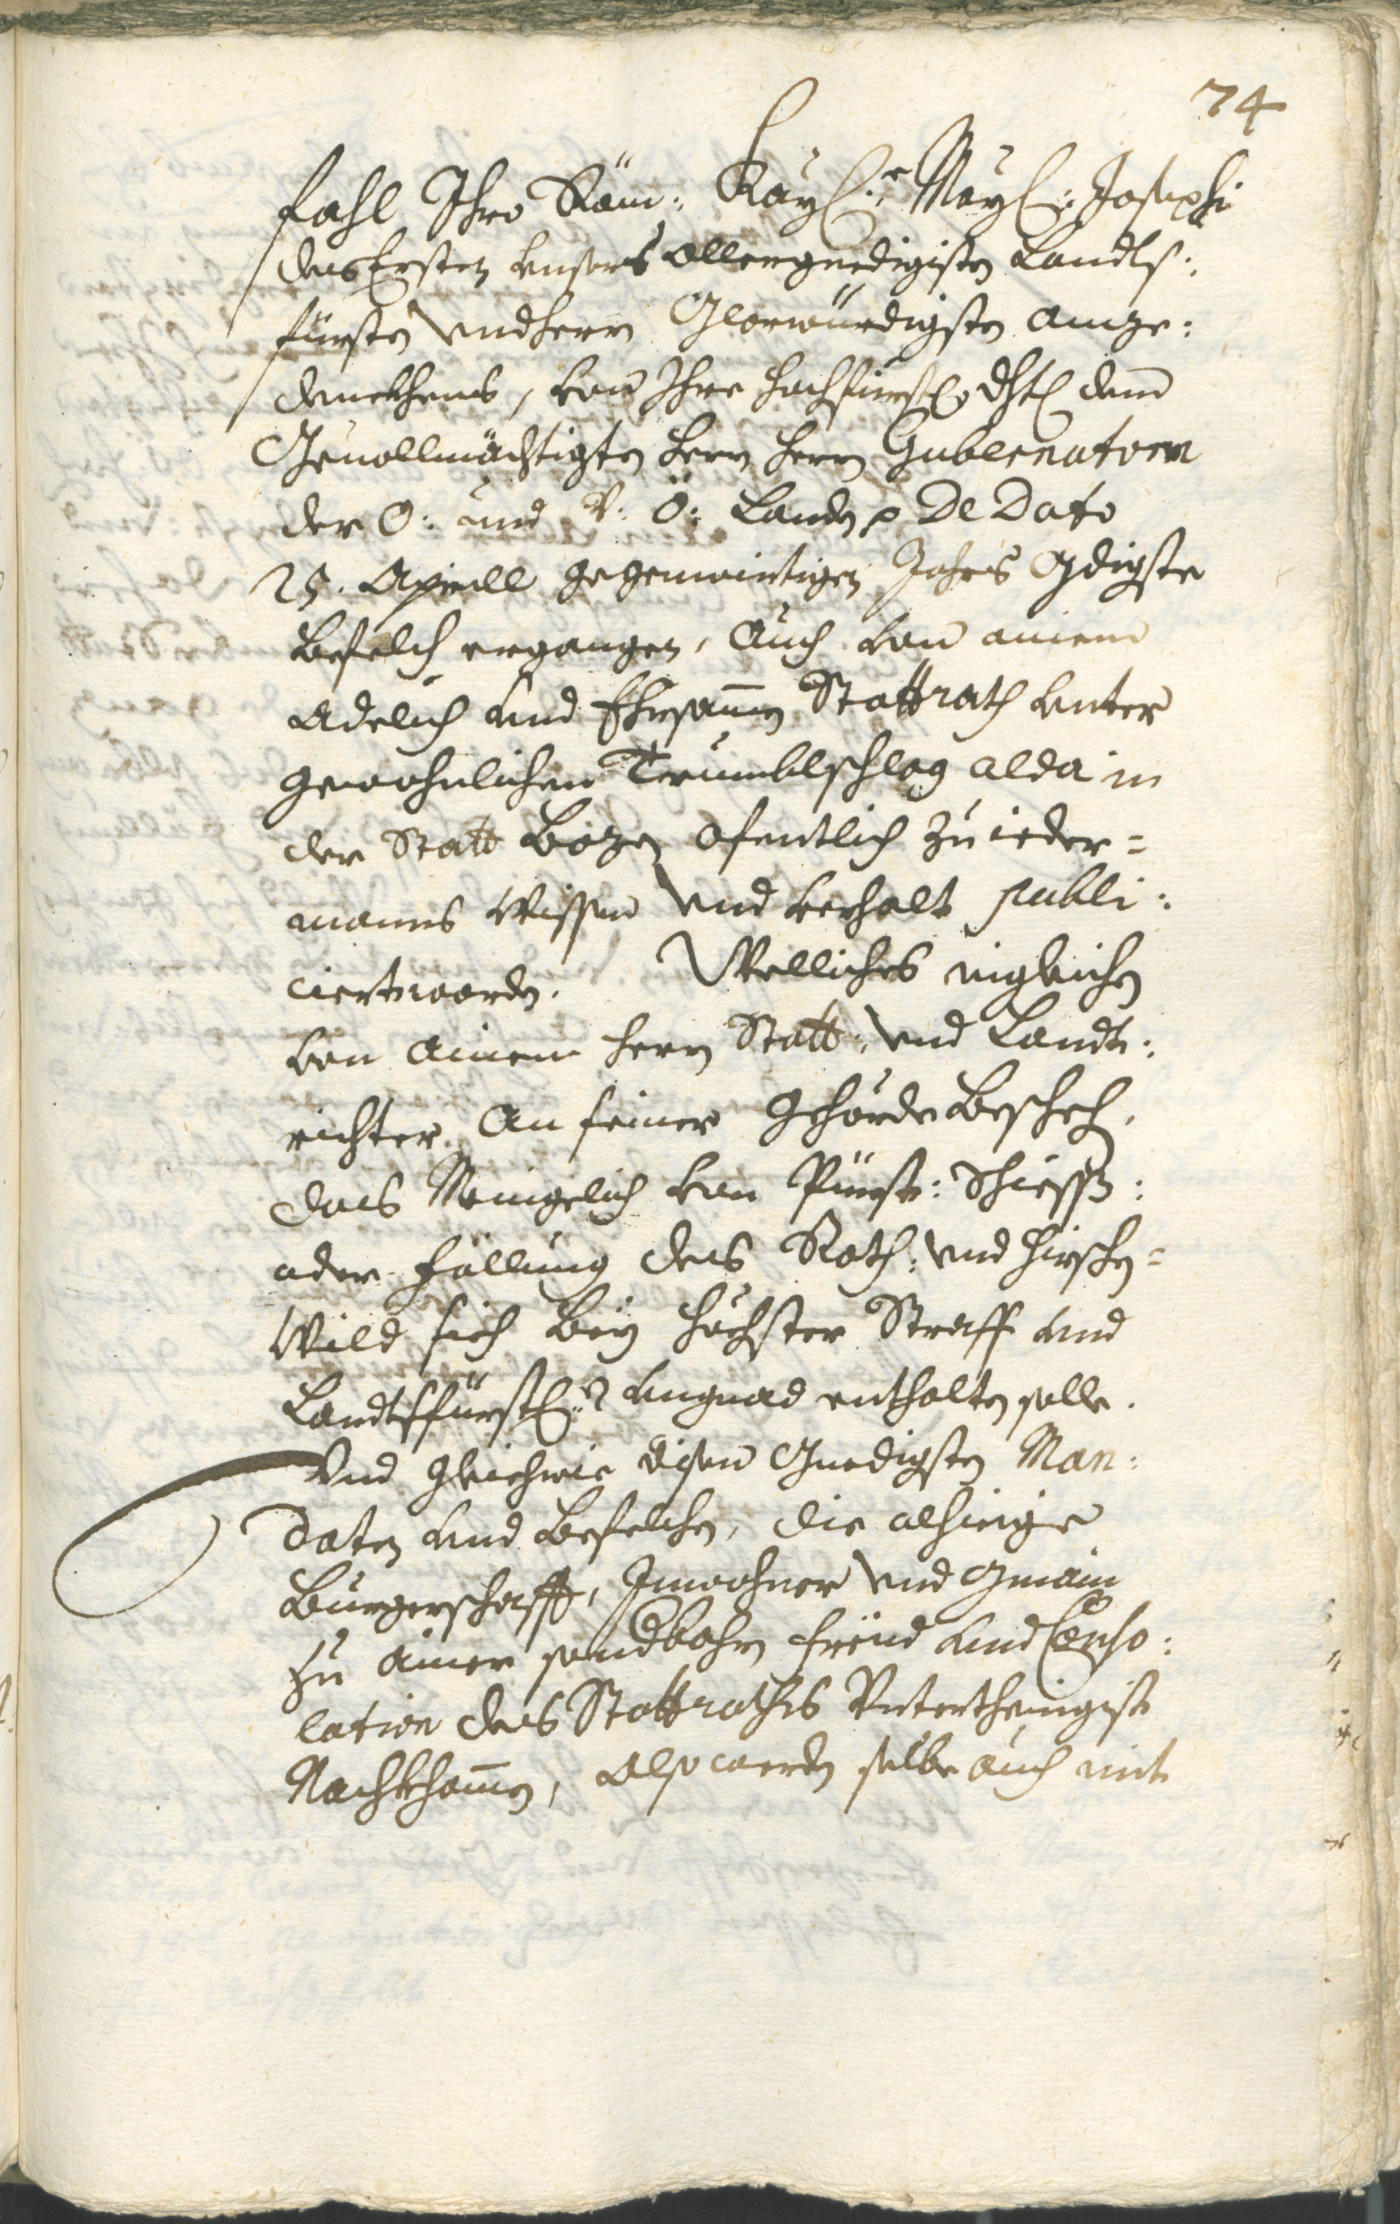 74
fahl Ihro Röm: Kayl:r Mayl: Josephi
des Ersten unsers Allergnedigisten Landts:
fürsten und herrn Glorwürdigsten ange:
denckhens, von Ihre hochfürstl: dhtl dem
Gevollmächtigten herrn herrn Gubernatorn
der O: und V: Ö: Landen De Dato
25. Aprill gegenwärtigen Jahrs Gdigste
Befelch ergangen, Auch von ainem
Adelich und Ehrsammen Stattrath unter
gewohnlichen Trumblschlag alda in
der Statt Bozen ofentlich zu ieder=
manns wissen und verhalt publi:
ciert worden. Welliches eingleichen
von Ainem herrn Statt: und Landt:
richter An seiner gehörde Bescheh,
das Menigelich von Pürst: Schiess:
oder fällung des Roth: und Hirschen=
Wild sich bey höchster Straff und
Landtsfürstl:r ungnad enthalten solle.
Und gleichwie disen Gnedigsten Man:
daten und Befelchen, die alhieige
Burgerschafft, Innwohner und Gmain
zu ainer sondbahrn freüd und Conso:
lation des Stattraths Unterthenigist
Nachkhommen, Also werden selbe auch mit